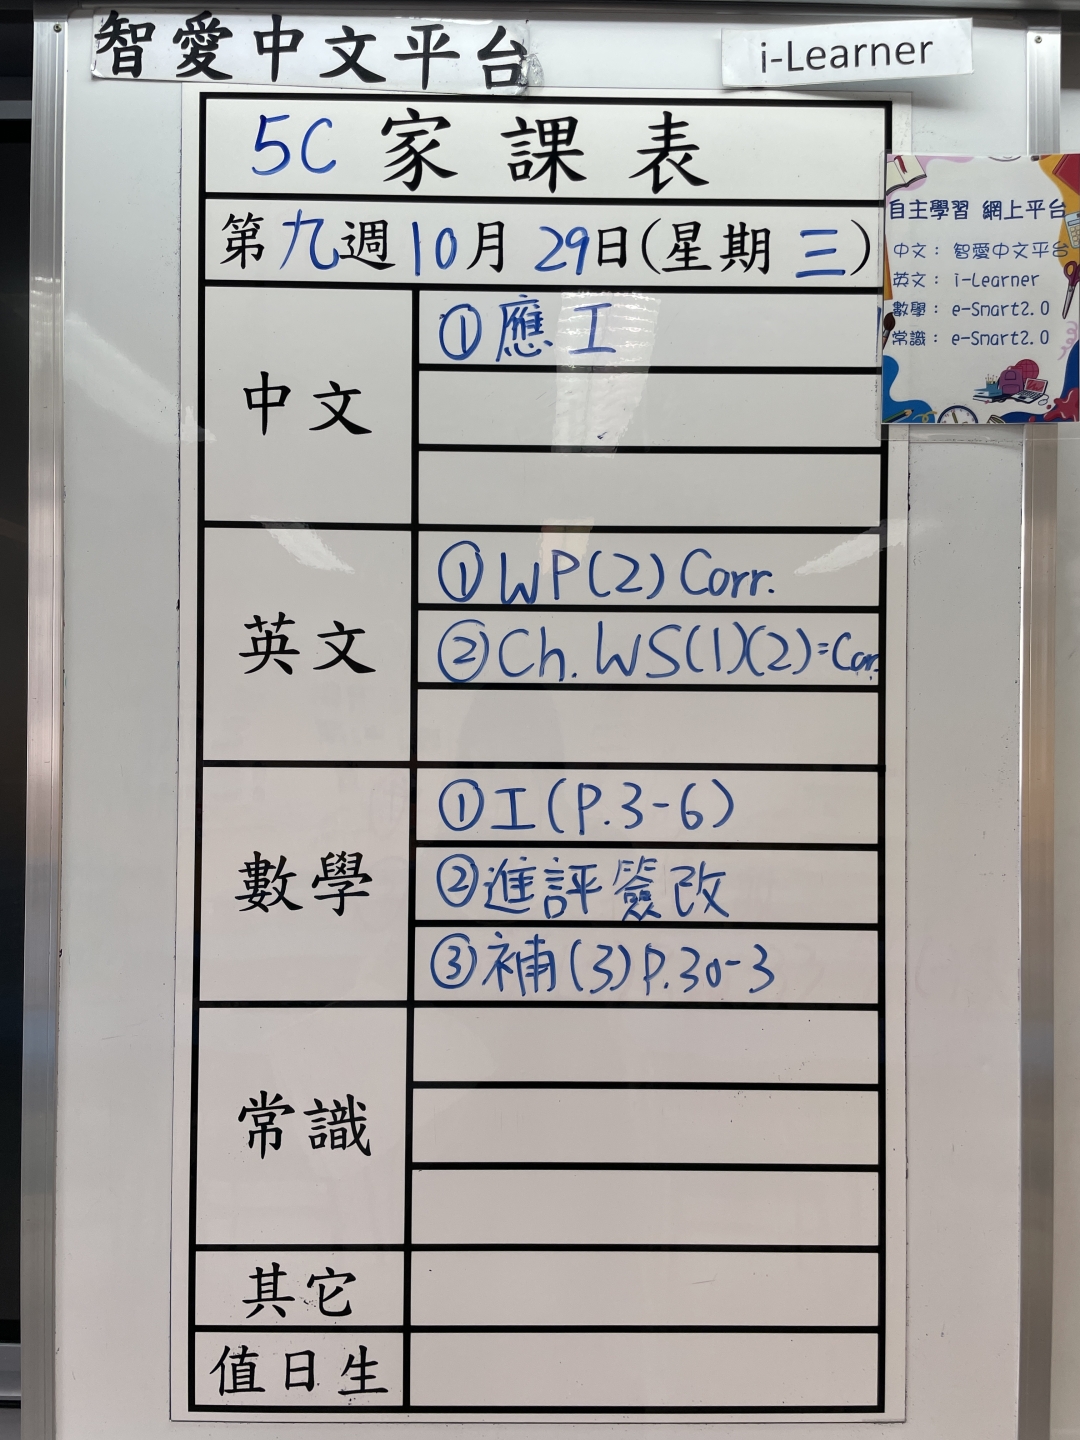 智愛中文平台
i-Learner
5C 家課表
第九週10月29日(星期三)
自主學習 網上平台
中文： 智愛中文平台
英文： i-Learner
數學： e-Smart2.0
常識： e-Smart2.0
中文
①應工
英文
①WP(2) Corr.
②Ch. WS(1)(2)=Corr.
數學
①工(P.3-6)
②進評簽改
③補(3)P.30-3
常識
其它
值日生